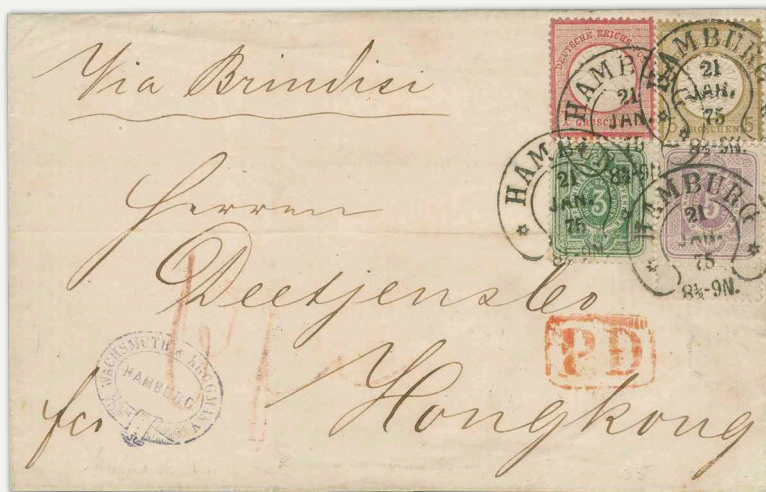 Via Brindisi
DEUTSCHE REICHS
1 GROSCHEN
5 GROSCHEN
HAMBURG
21
JAN.
75
8½-9N.
HAMBURG
21
JAN.
75
8½-9N.
HAMBURG
21
JAN.
75
8½-9N.
HAMBURG
21
JAN.
75
8½-9N.
3
5
Herren
Deetjens & Co
P.D
WACHSMUTH & KROGMANN
HAMBURG
für Hongkong